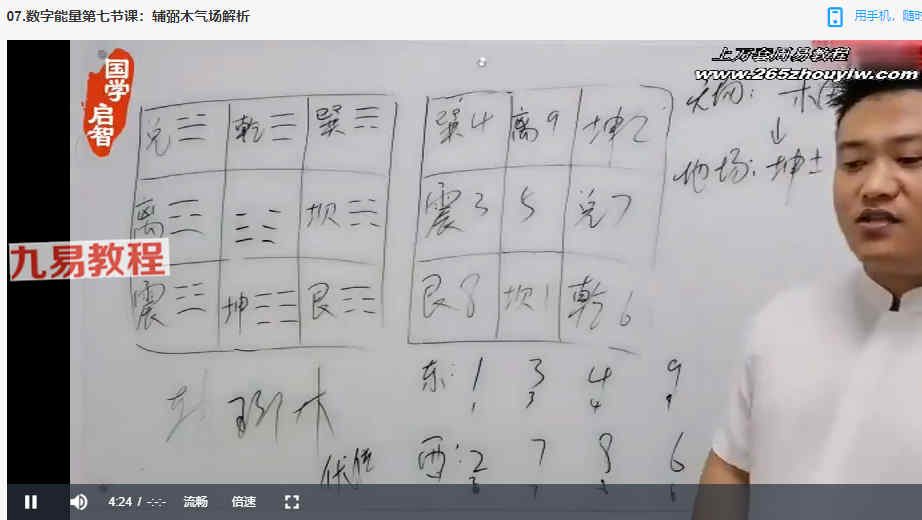 07.数字能量第七节课：辅弼木气场解析
用手机，随时
国学启智
上万套周易教程
www.265zhouyiw.com
九易教程
兑☱ 乾☰ 巽☴
离☲ 坎☵
震☳ 坤☷ 艮☶
巽4 离9 坤2
震3 5 兑7
艮8 坎1 乾6
天场：木
↓
地场：坤土
东：1 3 4 9
1 3 4 9
西：2 7 8 6
木
伏位
4:24 / -:-:- 流畅 倍速